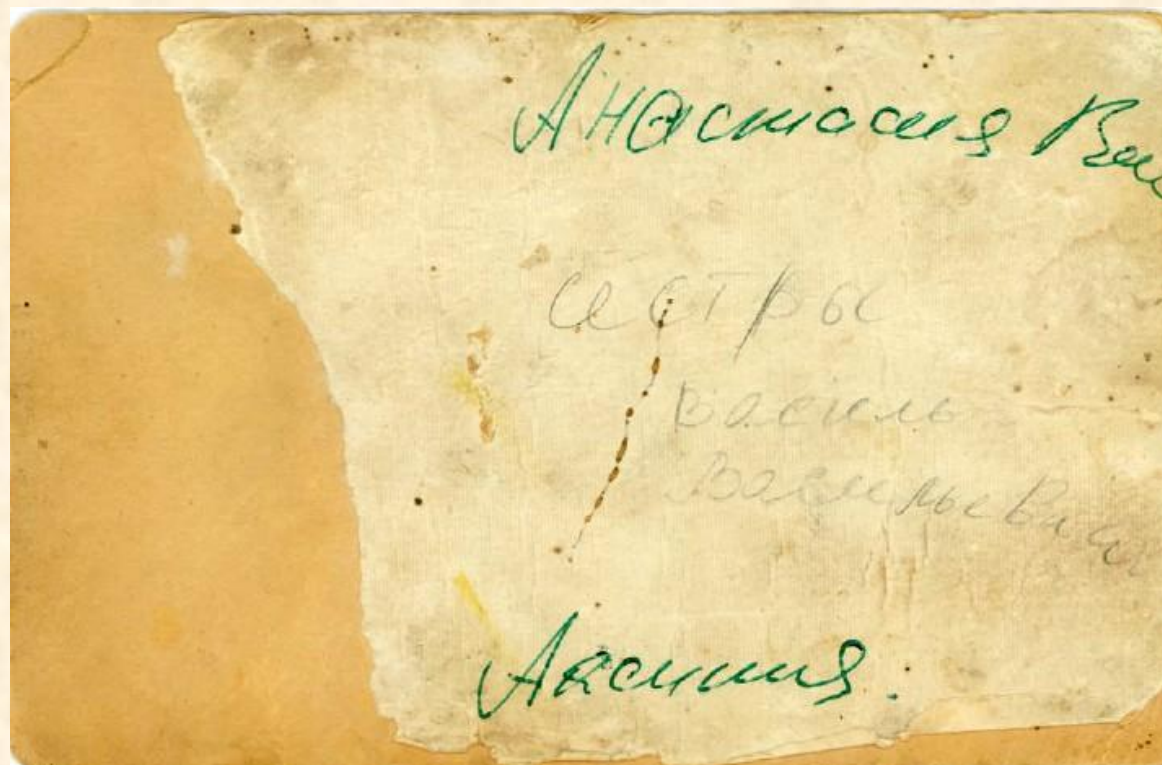 Анастасия Вас
сестры
Василь
Васильевич
Аксиния.